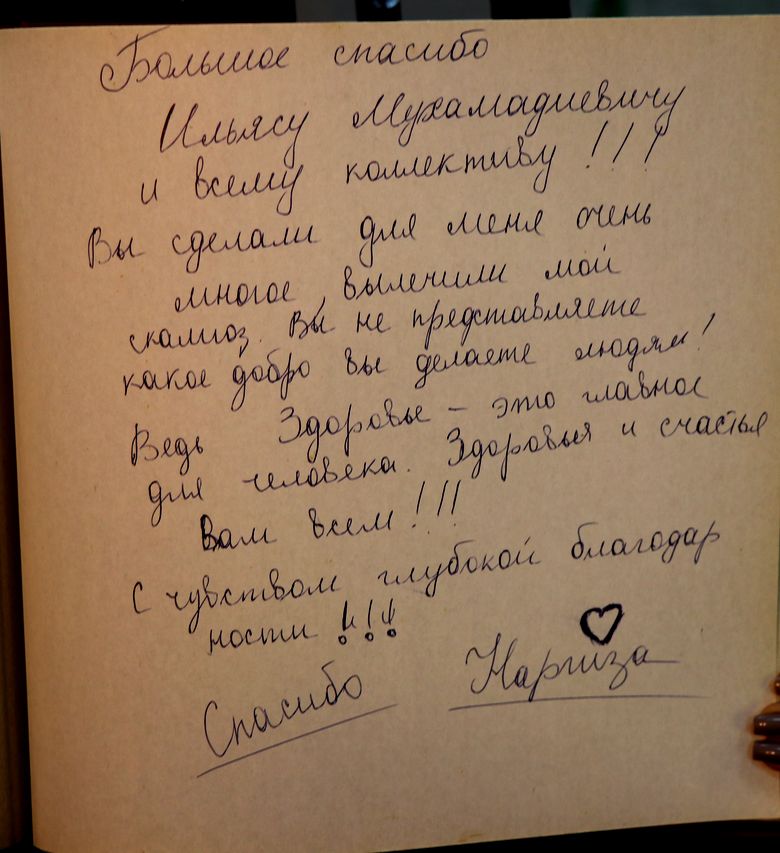 Большое спасибо
Ильясу Мухамадиевичу
и всему коллективу!!!
Вы сделали для меня очень
многое, вылечили мой
скалиоз. Вы не представляете
какое добро вы делаете людям!
Ведь Здоровье – это главное
для человека. Здоровья и счастья
Вам всем!!!
С чувством глубокой благодар
ности!!!
Спасибо Наргиза